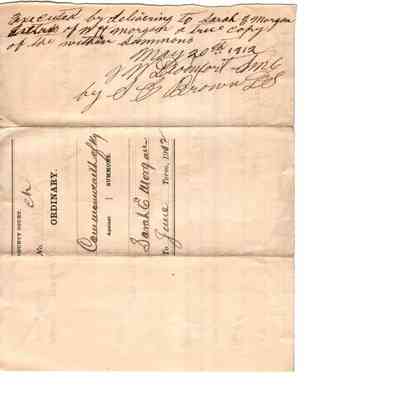 Executed by delivering to Sarah E Morgan
of W H Morgan a true copy
of the within summons
May 20th 1912
by S E Brown DS
COUNTY COURT.
No.
ORDINARY.
Commonwealth of Ky
Against
SUMMONS.
Sarah E Morgan
To June Term, 1912